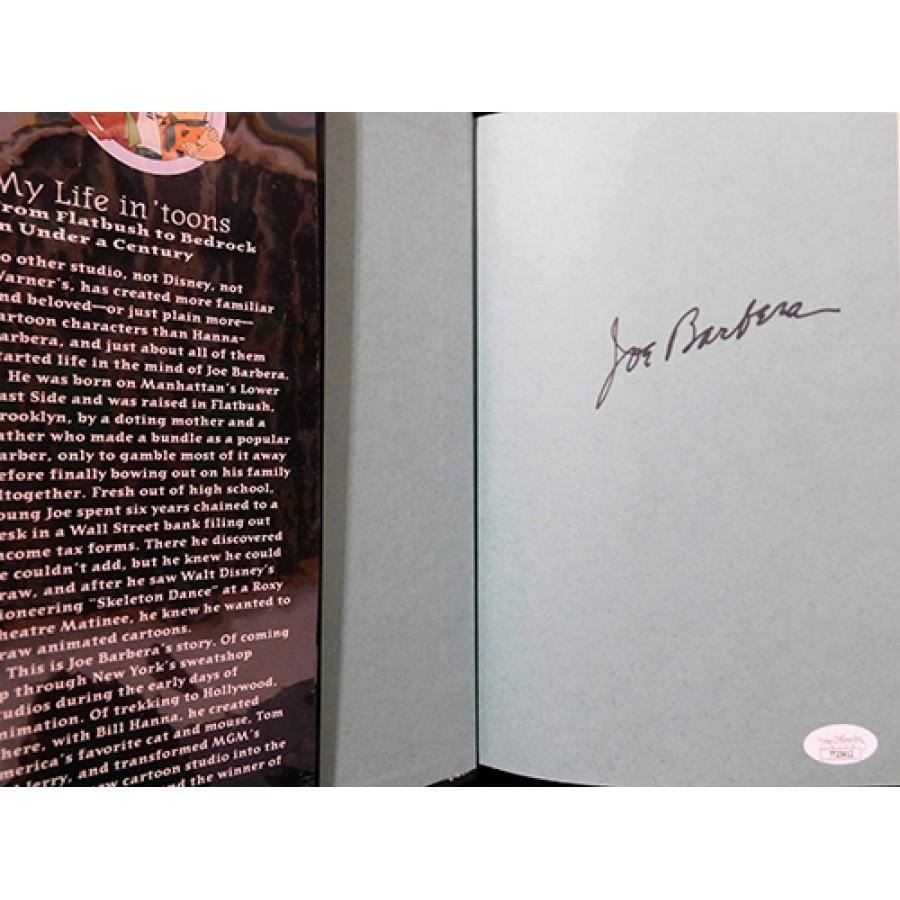 My Life in 'toons
from Flatbush to Bedrock
n Under a Century
o other studio, not Disney, not
Warner's, has created more familiar
nd beloved—or just plain more—
artoon characters than Hanna-
arbera, and just about all of them
tarted life in the mind of Joe Barbera.
He was born on Manhattan's Lower
ast Side and was raised in Flatbush,
rooklyn, by a doting mother and a
ather who made a bundle as a popular
arber, only to gamble most of it away
efore finally bowing out on his family
ltogether. Fresh out of high school,
oung Joe spent six years chained to a
esk in a Wall Street bank filing out
ncome tax forms. There he discovered
e couldn't add, but he knew he could
raw, and after he saw Walt Disney's
ioneering "Skeleton Dance" at a Roxy
heatre Matinee, he knew he wanted to
raw animated cartoons.
This is Joe Barbera's story. Of coming
p through New York's sweatshop
tudios during the early days of
nimation. Of trekking to Hollywood,
here, with Bill Hanna, he created
merica's favorite cat and mouse, Tom
d Jerry, and transformed MGM's
w cartoon studio into the
nd the winner of
Joe Barbera